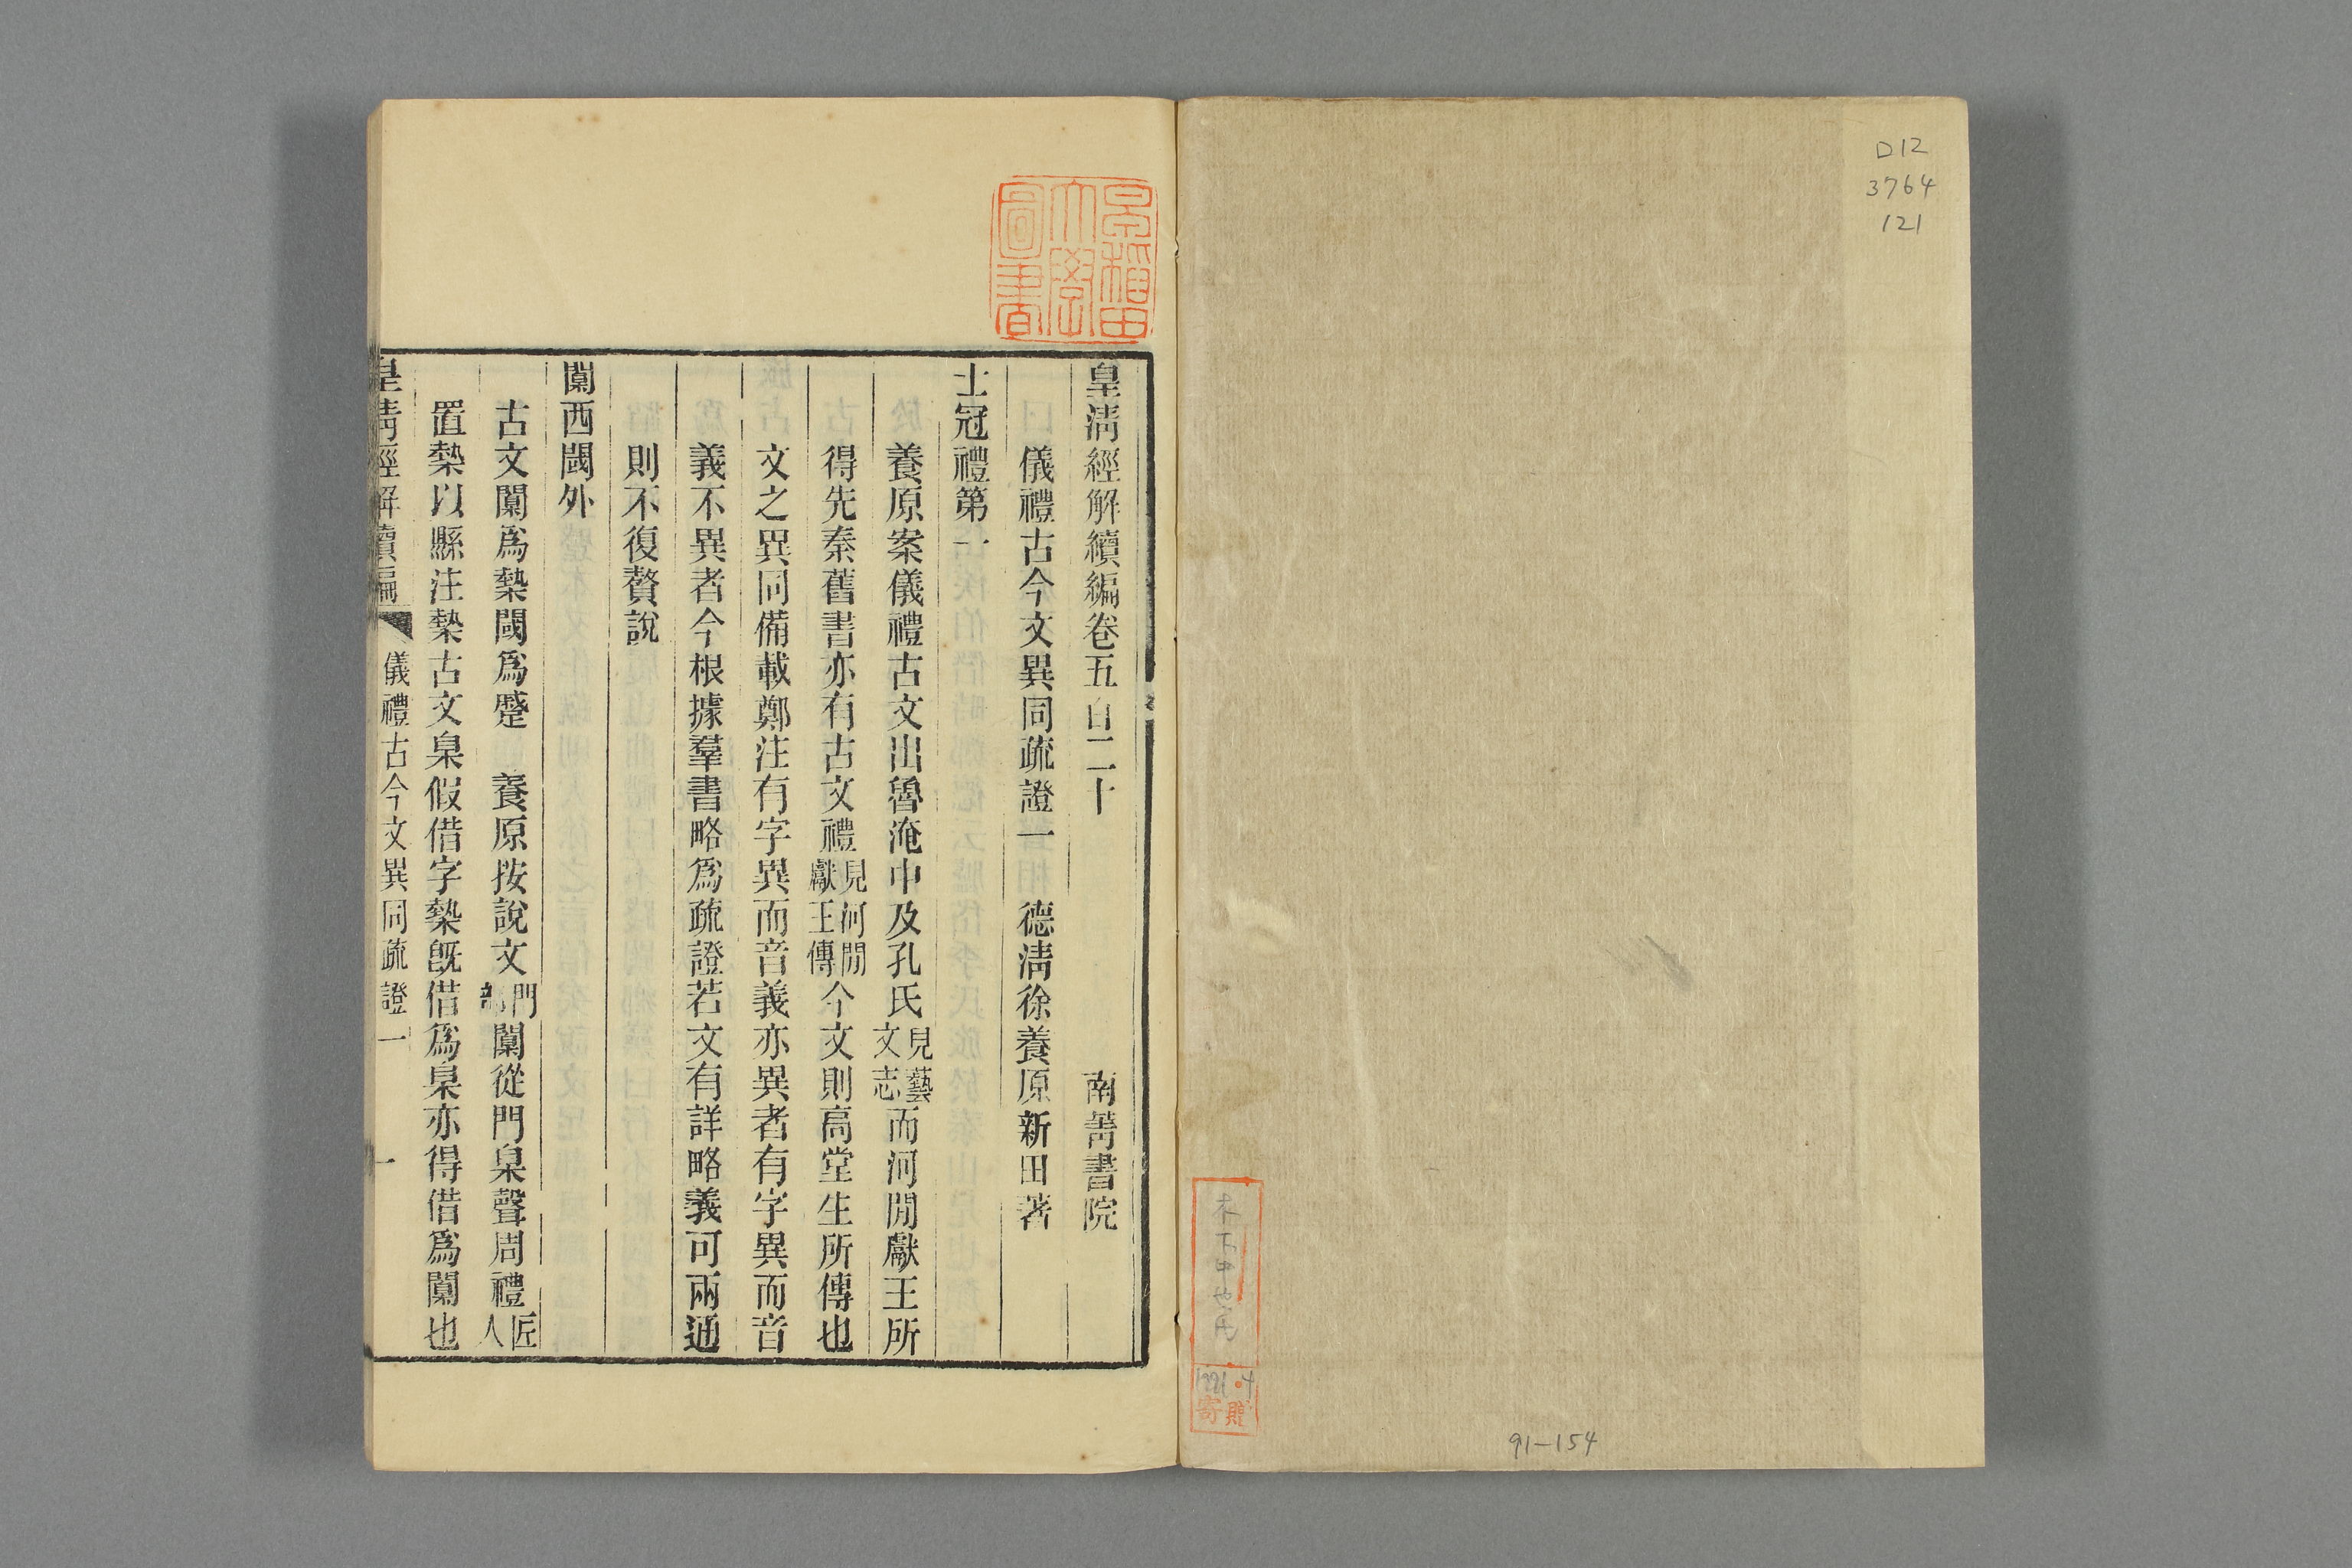 D12
3764
121
寄贈
91-154
早稲田
大學
圖書
皇清經解續編卷五百二十
南菁書院
儀禮古今文異同疏證一
德清徐養原新田著
士冠禮第一
養原案儀禮古文出魯淹中及孔氏見藝文志而河閒獻王所
得先秦舊書亦有古文禮見河閒獻王傳今文則高堂生所傳也
文之異同備載鄭注有字異而音義亦異者有字異而音
義不異者今根據羣書略爲疏證若文有詳略義可兩通
則不復贅說
闑西閾外
古文闑爲槷閾爲蹙 養原按說文門部闑從門臬聲周禮匠人
置槷以縣注槷古文臬假借字槷旣借爲臬亦得借爲闑也
皇清經解續編
儀禮古今文異同疏證一
一